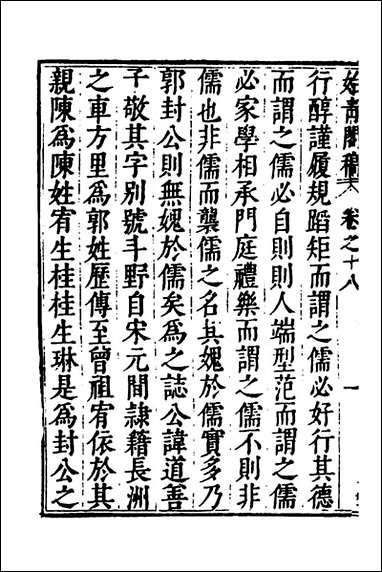 姑青閣稿 卷之十八 一
行醇謹履規蹈矩而謂之儒必好行其德
而謂之儒必自則則人端型范而謂之儒
必家學相承門庭禮樂而謂之儒不則非
儒也非儒而襲儒之名其媿於儒實多乃
郭封公則無媿於儒矣為之誌公諱道善
子敬其字別號斗野自宋元間隷籍長洲
之車方里為郭姓歷傳至曾祖宥依於其
親陳為陳姓宥生桂桂生琳是為封公之